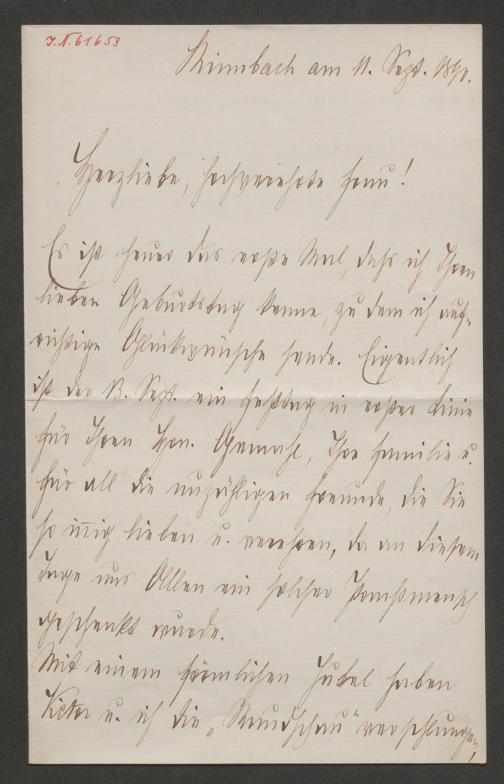 J.N. 61653
Rimbach am 11. Sept. 1890.
Herzliebe, hochverehrte Frau!
Es ist heuer das erste Mal, daß ich Ihren
lieben Geburtstag kenne, zu dem ich auf-
richtige Glückwünsche sende. Eigentlich
ist der 13. Sept. ein Festtag in erster Linie
für Ihren Hrn. Gemahl, Ihre Familie u.
für all die unzähligen Freunde, die Sie
so innig lieben u. verehren, da an diesem
Tage uns Allen ein solcher
geschenkt wurde.
Mit einem förmlichen Jubel haben
u. ich die „Rundschau" verschlungen,